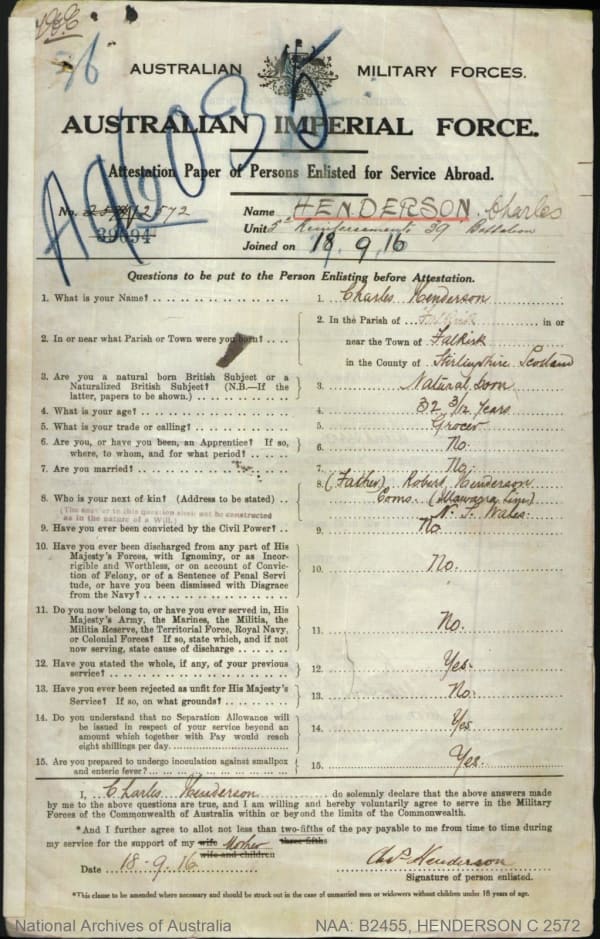 96
A96035
AUSTRALIAN MILITARY FORCES.
AUSTRALIAN IMPERIAL FORCE.
Attestation Paper of Persons Enlisted for Service Abroad.
No. 2572
39694
Name HENDERSON. Charles
Unit 5th Reinforcements 39 Battalion
Joined on 18.9.16
Questions to be put to the Person Enlisting before Attestation.
1. What is your Name? 1. Charles Henderson
2. In or near what Parish or Town were you born? 2. In the Parish of Falkirk in or
near the Town of Falkirk
in the County of Stirlingshire Scotland
3. Are you a natural born British Subject or a
Naturalized British Subject? (N.B.—If the
latter, papers to be shown.) 3. Natural born
4. What is your age? 4. 32 3/12 Years
5. What is your trade or calling? 5. Grocer
6. Are you, or have you been, an Apprentice? If so,
where, to whom, and for what period? 6. No.
7. Are you married? 7. No.
8. Who is your next of kin? (Address to be stated) 8. (Father) Robert Henderson
(The answer to this question shall not be constructed
as in the nature of a Will.)
Coms. (Illawarra Line)
N. S. Wales
9. Have you ever been convicted by the Civil Power? 9. No
10. Have you ever been discharged from any part of His
Majesty's Forces, with Ignominy, or as Incor-
rigible and Worthless, or on account of Convic-
tion of Felony, or of a Sentence of Penal Servi
tude, or have you been dismissed with Disgrace
from the Navy? 10. No.
11. Do you now belong to, or have you ever served in, His
Majesty's Army, the Marines, the Militia, the
Militia Reserve, the Territorial Force, Royal Navy,
or Colonial Forces? If so, state which, and if not
now serving, state cause of discharge 11. No.
12. Have you stated the whole, if any, of your previous
service? 12. Yes.
13. Have you ever been rejected as unfit for His Majesty's
Service? If so, on what grounds? 13. No.
14. Do you understand that no Separation Allowance will
be issued in respect of your service beyond an
amount which together with Pay would reach
eight shillings per day. 14. Yes
15. Are you prepared to undergo inoculation against smallpox
and enteric fever? 15. Yes.
I, Charles Henderson do solemnly declare that the above answers made
by me to the above questions are true, and I am willing and hereby voluntarily agree to serve in the Military
Forces of the Commonwealth of Australia within or beyond the limits of the Commonwealth.
*And I further agree to allot not less than two-fifths of the pay payable to me from time to time during
three-fifths
my service for the support of my wife Mother
wife and children
Date 18-9.16 Chas Henderson
Signature of person enlisted.
*This clause to be amended where necessary and should be struck out in the case of unmarried men or widowers without children under 18 years of age.
National Archives of Australia NAA: B2455, HENDERSON C 2572